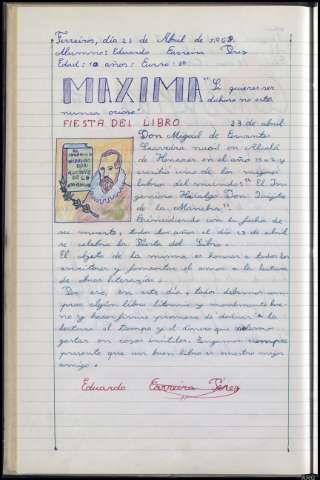 Ferreiros, día 23 de Abril de
Alumno: Eduardo Carreira Pérez
Edad: 10 años: Curso:
MAXIMA "Si quieres ser
dichoso no estés
nunca ocioso"
FIESTA DEL LIBRO 23 de abril
Don Miguel de Cervantes
Saavedra nació en Alcalá
de Henares en el año 1547 y
escribió uno de los mejores
libros del mundo: "El In
genioso Hidalgo Don Quijote
de la Mancha".
Coincidiendo con la fecha de
su muerte, todos los años el día 23 de abril
se celebra la Fiesta del Libro.
El objeto de la misma es honrar a todos los
escritores y fomentar el amor a la lectura
de obras literarias.
Por eso, en este día, todos debemos com
prar algún libro literario y moralmente bue
no y hacer firme promesa de dedicar a la
lectura el tiempo y el dinero que
gastar en cosas inútiles. Tengamos siempre
presente que un buen libro es nuestro mejor
amigo.
Eduardo Carreira Pérez